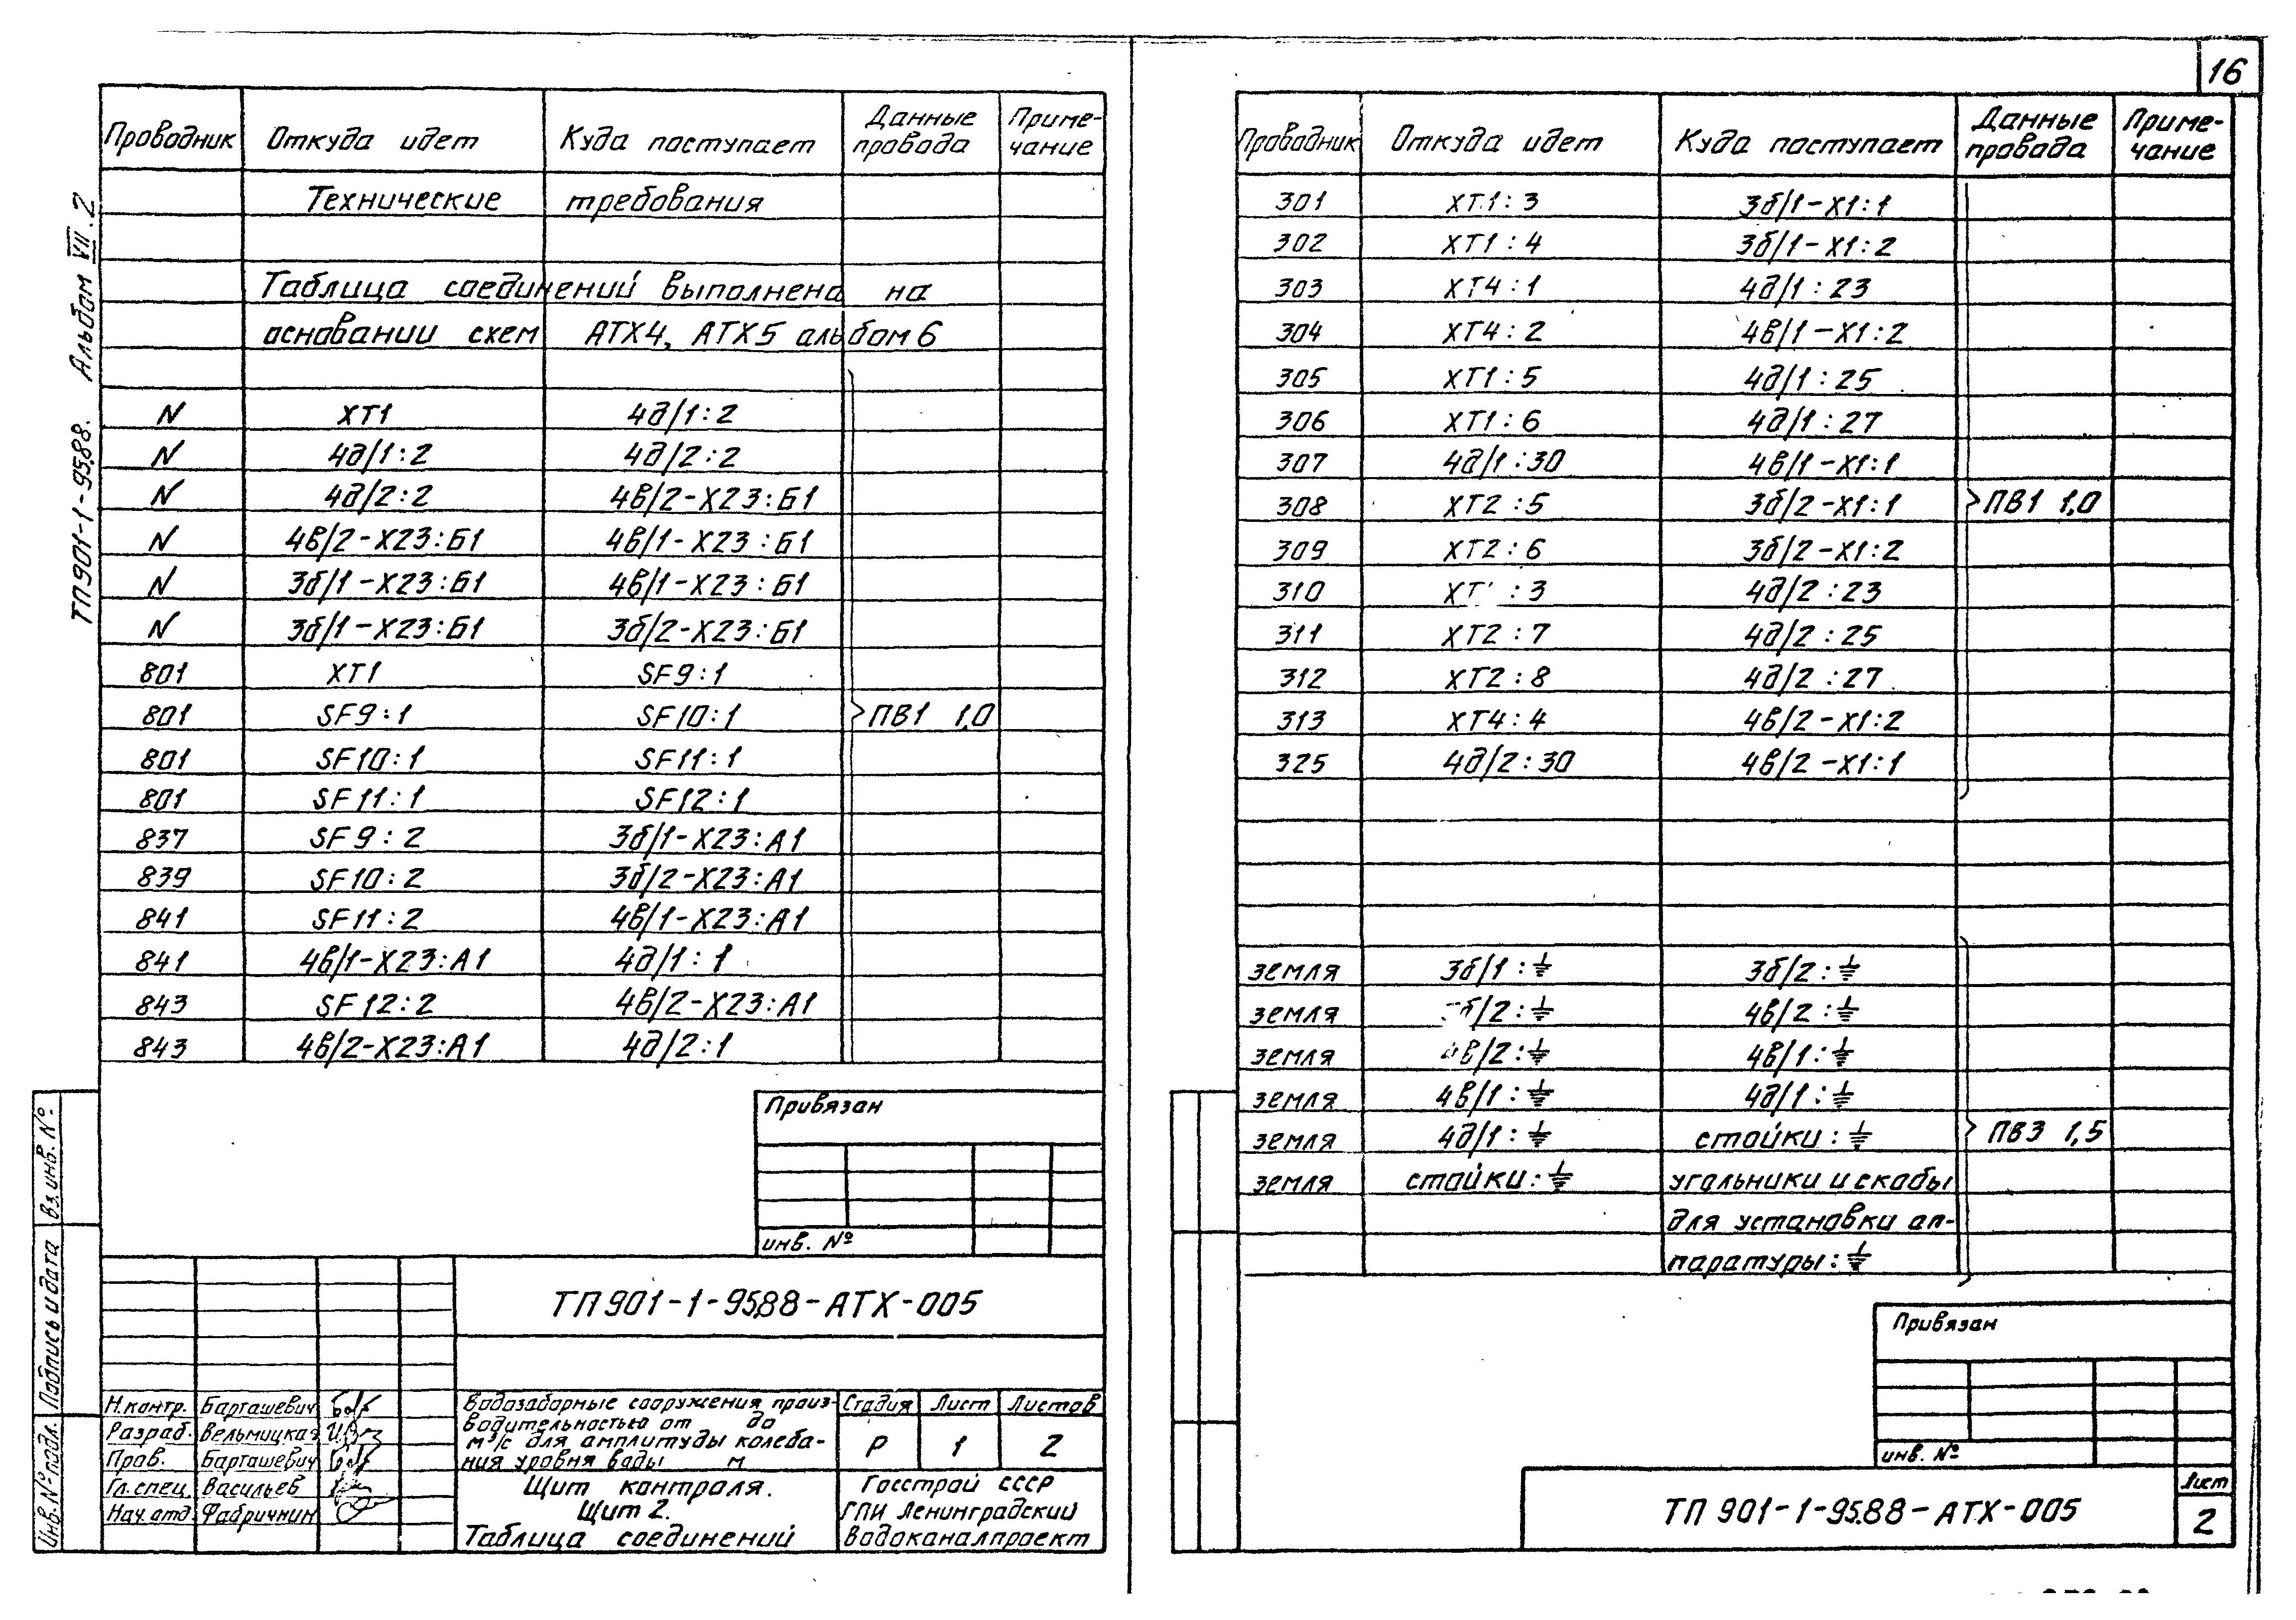 16
ТП901-1-95.88. Альбом VII.2
Проводник Откуда идет Куда поступает Данные провода Приме-чание
Технические требования
Таблица соединений выполнена на
основании схем АТХ4, АТХ5 альбом 6
N ХТ1 4д/1:2
N 4д/1:2 4д/2:2
N 4д/2:2 4в/2-Х23:Б1
N 4в/2-Х23:Б1 4в/1-Х23:Б1
N 3б/1-Х23:Б1 4в/1-Х23:Б1
N 3б/1-Х23:Б1 3б/2-Х23:Б1
801 ХТ1 SF9:1
801 SF9:1 SF10:1 ПВ1 1,0
801 SF10:1 SF11:1
801 SF11:1 SF12:1
837 SF9:2 3б/1-Х23:А1
839 SF10:2 3б/2-Х23:А1
841 SF11:2 4в/1-Х23:А1
841 4в/1-Х23:А1 4д/1:1
843 SF12:2 4в/2-Х23:А1
843 4в/2-Х23:А1 4д/2:1
Привязан
инв. №
Инв.№подл. Подпись и дата Вз.инв.№.
ТП901-1-95.88-АТХ-005
Н.контр. Барташевич
Разраб. Вельмицкая
Пров. Барташевич
Гл.спец. Васильев
Нач.отд Фабричнин
Водозаборные сооружения произ-
водительностью от до
м³/с для амплитуды колеба-
ния уровня воды м
Стадия Лист Листов
Р 1 2
Щит контроля.
Щит 2.
Таблица соединений
Госстрой СССР
ГПИ Ленинградский
Водоканалпроект
Проводник Откуда идет Куда поступает Данные провода Приме-чание
301 ХТ1:3 3б/1-Х1:1
302 ХТ1:4 3б/1-Х1:2
303 ХТ4:1 4д/1:23
304 ХТ4:2 4в/1-Х1:2
305 ХТ1:5 4д/1:25
306 ХТ1:6 4д/1:27
307 4д/1:30 4в/1-Х1:1
308 ХТ2:5 3б/2-Х1:1 ПВ1 1,0
309 ХТ2:6 3б/2-Х1:2
310 :3 4д/2:23
311 ХТ2:7 4д/2:25
312 ХТ2:8 4д/2:27
313 ХТ4:4 4в/2-Х1:2
325 4д/2:30 4в/2-Х1:1
земля 3б/1:⏚ 3б/2:⏚
земля 3б/2:⏚ 4в/2:⏚
земля 4в/2:⏚ 4в/1:⏚
земля 4в/1:⏚ 4д/1:⏚
земля 4д/1:⏚ стойки:⏚ ПВ3 1,5
земля стойки:⏚ угольники и скобы
для установки ап-
паратуры:⏚
Привязан
инв. №
ТП 901-1-95.88-АТХ-005
Лист
2